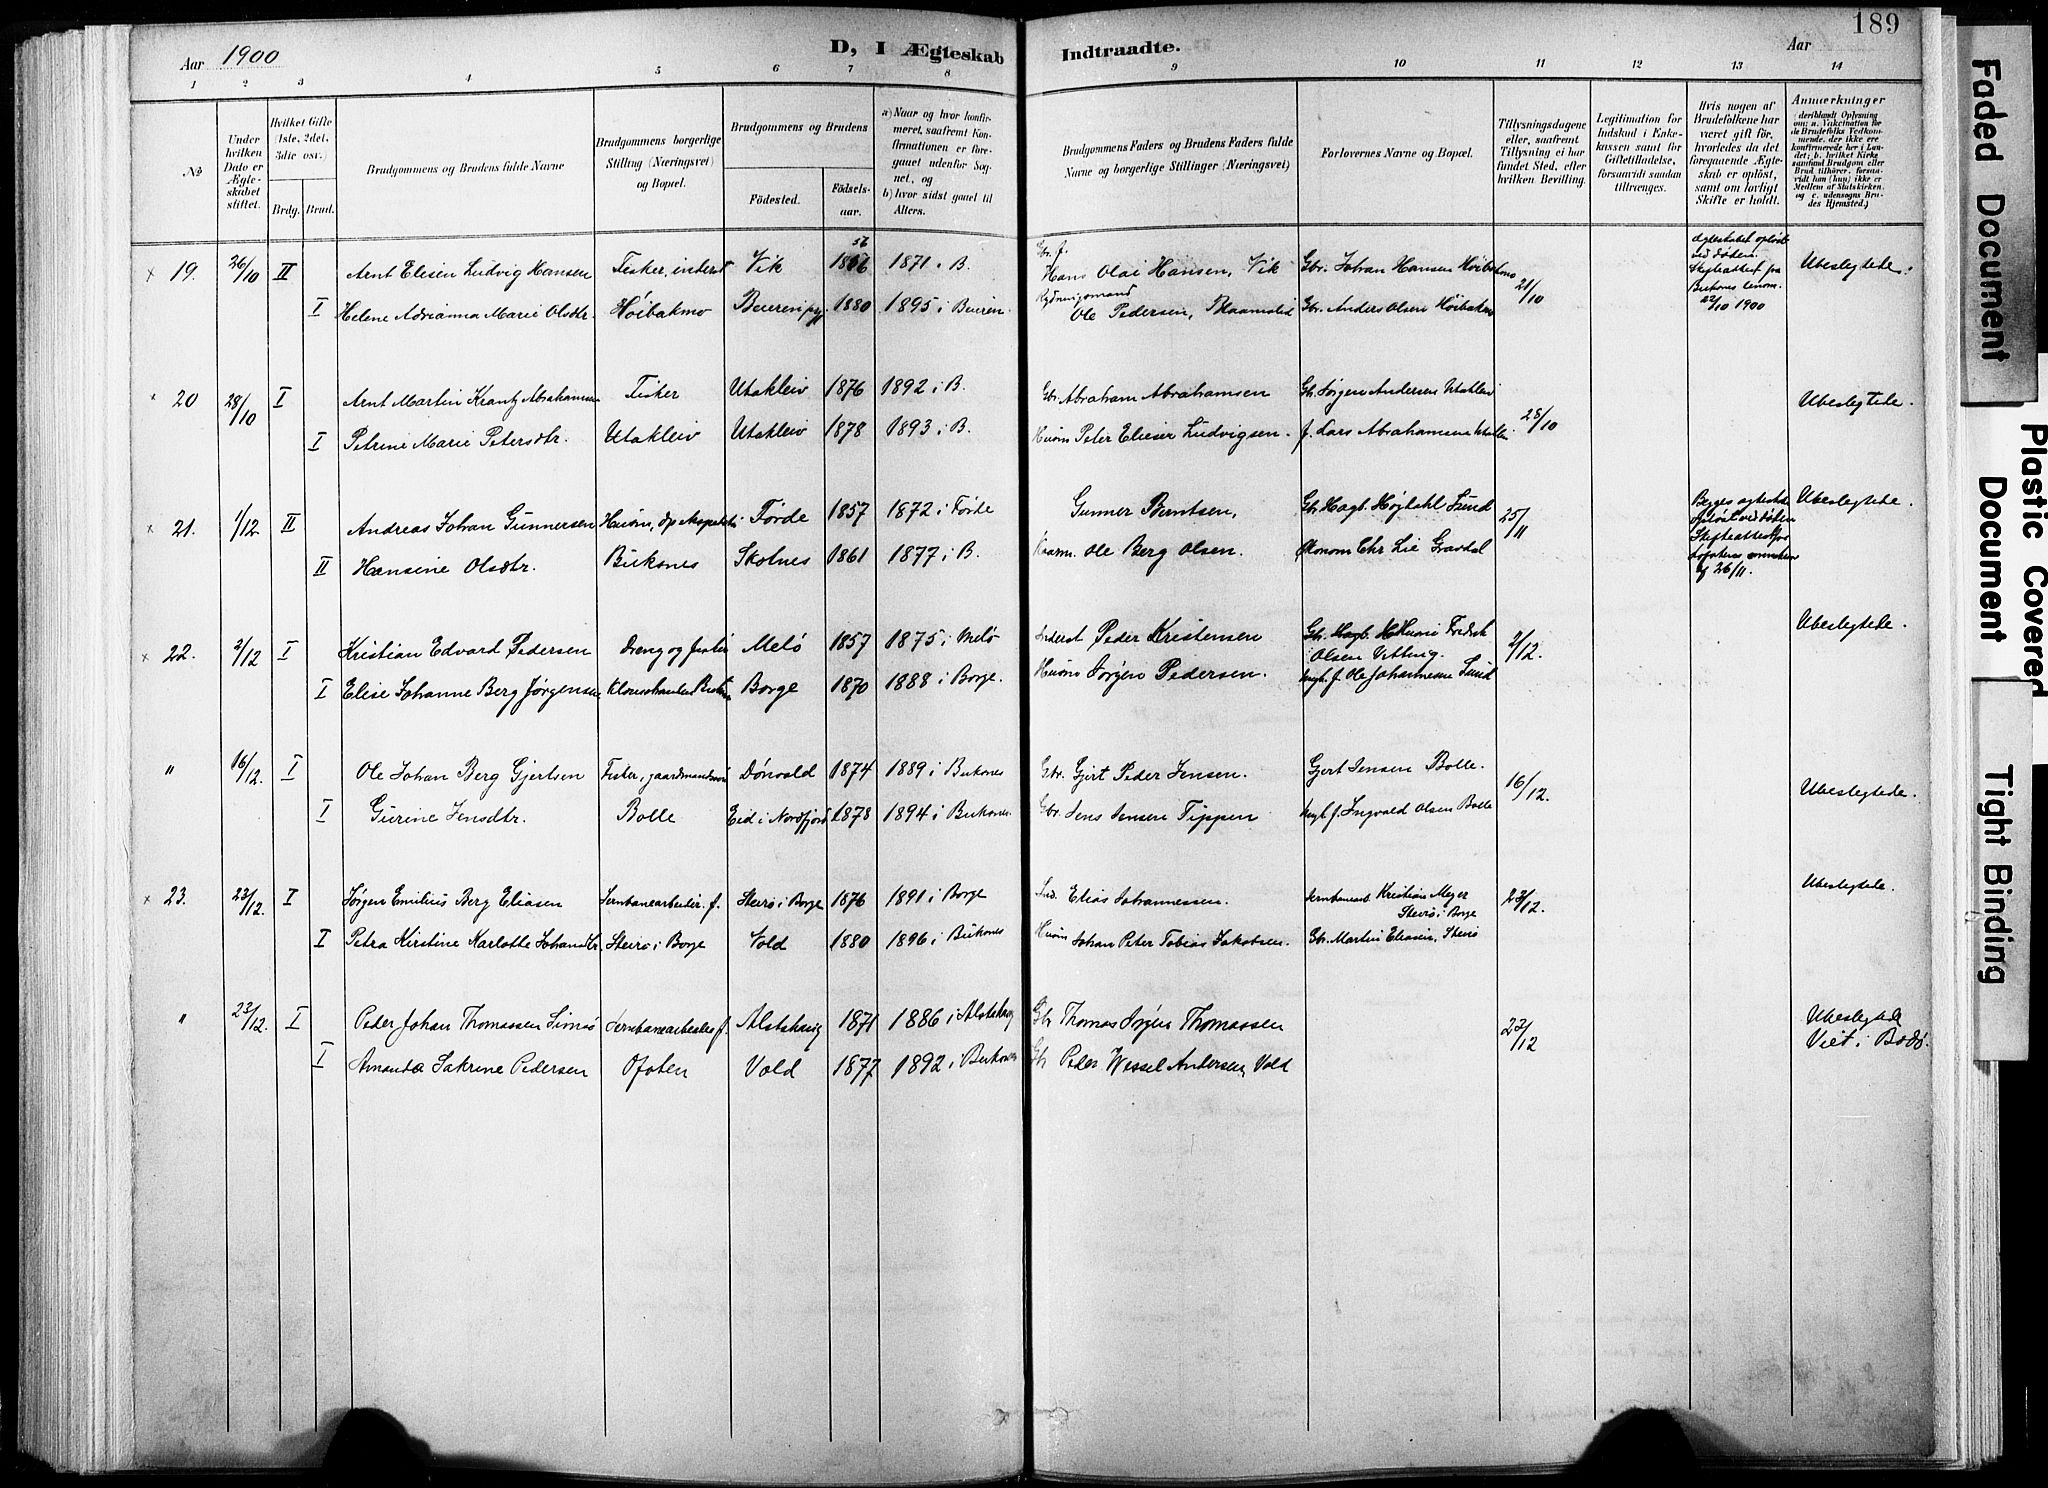 189
Aar 1900
D, I Ægteskab Indtraadte.
Aar
1 2 3 4 5 6 7 8 9 10 11 12 13 14
No
Under hvilken Dato er Ægteskabet stiftet.
Hvilket Gifte (1ste, 2det, 3die osv.)
Brdg. Brud.
Brudgommens og Brudens fulde Navne
Brudgommens borgerlige Stilling (Næringsvei) og Bopæl.
Brudgommens og Brudens
Fødested.
Fødselsaar.
a) Naar og hvor konfirmeret, saafremt Konfirmationen er foregaaet udenfor Sognet, og
b) hvor sidst gaaet til Alters.
Brudgommens Faders og Brudens Faders fulde Navne og borgerlige Stillinger (Næringsvei)
Forlovernes Navne og Bopæl.
Tillysningsdagene eller, saafremt Tillysning ei har fundet Sted, efter hvilken Bevilling.
Legitimation for Indskud i Enkekassen samt for Giftetilladelse, forsaavidt saadan tiltrænges.
Hvis nogen af Brudefolkene har været gift før, hvorledes da det foregaaende Ægteskab er opløst, samt om lovligt Skifte er holdt.
Anmærkninger (deriblandt Oplysning om: a. Vakcination for de Brudefolks Vedkommende, der ikke ere konfirmerede her i Landet; b. hvilket Kirkesamfund Brudgom eller Brud tilhører, forsaavidt han (hun) ikke er Medlem af Statskirken, og c. udensogns Brudes Hjemsted.)
× 19. 26/10 II Arnt Elisen Ludvig Hansen Fisker, inderst Vik 1856 1871 i B. Gbr. f. Hans Olai Hansen, Vik Gbr. Johan Hansen Høibakmo 21/10 Ægteskabet opløst ved døden. Skifteattest fra Buksnes lensm. 22/10 1900 Ubeslegtede.
I Helene Adrianna Marie Olsdtr. Høibakmo Beieren pgj 1880 1895 i Beieren. Rydningsmand Ole Pedersen, Gbr. Anders Olsen Høibakmo
20 28/10 I Arnt Martin Krantz Abrahamsen Fisker Utakleiv 1876 1892 i B. Gbr. Abraham Abrahamsen Gbr. Jørgen Andersen Utakleiv 28/10 Ubeslegtede.
I Petrine Marie Petersdtr. Utakleiv Utakleiv 1878 1893 i B. Husm Peter Elieser Ludvigsen. f. Lars Abrahamsen Utakleiv
× 21. 1/12 II Andreas Johan Gunnersen Husm, Førde 1857 1872 i Førde Gunner Berntsen, Gbr. Hagb. Højdahl Sund 25/11 Begges ægteskab opløst ved døden Ubeslegtede.
II Hansine Olsdtr. Buksnes Skotnes 1861 1877 i B. Ole Berg Olsen. Økonom Chr Lie Gravdal af 26/11.
× 22. 2/12 I Kristian Edvard Pedersen Dreng og fisker Melø 1857 1875 i Melø Inderst Peder Kristensen Fredrik Olsen 2/12. Ubeslegtede.
I Elise Johanne Berg Jørgensen Borge 1870 1888 i Borge. Husm Jørgen Pedersen. Ungk. f. Ole Johannesen Sund
" 16/12. I Ole Johan Berg Gjertsen Fisker, gaardmandssøn Dønvold 1874 1889 i Buksnes Gbr. Gjert Peder Jensen. Gjert Jensen Bolle. 16/12. Ubeslegtede.
I Gurine Jensdtr. Bolle Eid i Nordfjord 1878 1894 i Buksnes. Gbr. Jens Jensen Tippen Ungk. f. Ingvald Olsen Bolle
× 23. 23/12. I Jørgen Emilius Berg Eliasen Jernbanearbeider. f. Steirø i Borge 1876 1891 i Borge Ind. Elias Johannessen. Jernbanearb. Kristian Meyer Steirø i Borge 23/12. Ubeslegtede.
I Petra Kirstine Karlotte Johansdtr Steirø i Borge Vold 1880 1896 i Buksnes Husm Johan Peter Tobias Jakobsen. Gbr. Martin Eliasen, Steirø
" 23/12. I Peder Johan Thomassen Simsø Jernbanearbeider f. Alstahaug 1871 1886 i Alstahaug Gbr Thomas Jrgen Thomassen 23/12 Ubeslegtede Viet i Bodø.
I Amanda Sakrine Pedersen Ofoten Vold 1877 1892 i Buksnes Gbr Peder Wessel Andersen, Vold
Faded Document
Plastic Covered Document
Tight Binding